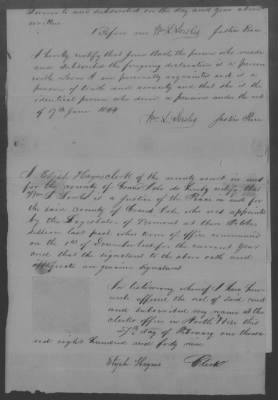 Sworn to and subscribed on the day and year above
written
Before me Wm L Sowles Justice Peace
I hereby certify that Jane Beach the person who made
and subscribed the forgoing declaration is a person
with whom I am personally acquainted and is a
person of truth and veracity and that she is the
identical person who drew a pension under the act
of 17th June 1844
Wm L Sowles Justice Peace
I Elijah Haynes clerk of the county court in and
for the county of Grand Isle do hereby certify that
Wm L Sowles is a Justice of the Peace in and for
the said county of Grand Isle who was appointed
by the Legislator of Vermont at their October
session last past who term of office commenced
on the 1st of December last for the current year
and that the signature to the above oath and
certificate are genuine signatures
In testimony whereof I have here
unto affixed the seal of said court
and subscribed my name at the
clerks office in North Hero this
27th day of February one thous
and eight hundred and forty nine
Elijah Haynes Clerk